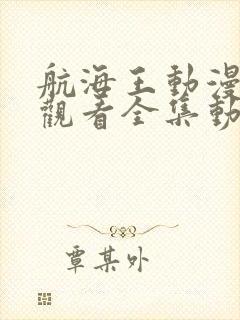 航海王動漫
觀看全集動
覃某外